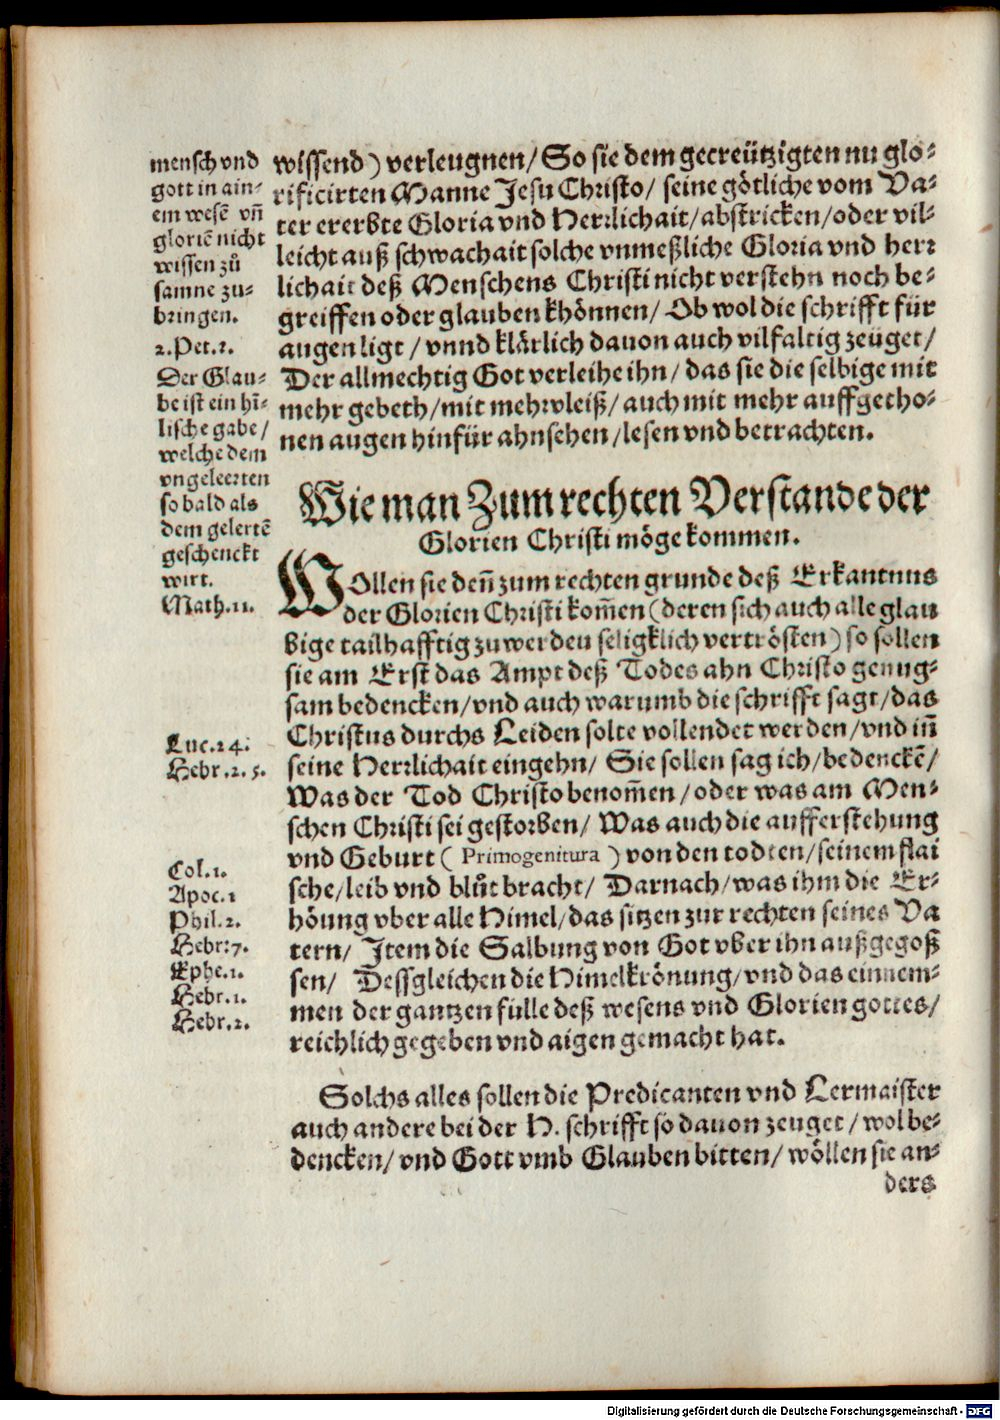 mensch vnd
gott in ain-
em wesē vn̄
gloriē nicht
wissen zů
samne zu-
bringen.
2.Pet.1.
Der Glau-
be ist ein hī-
lische gabe/
welche dem
vngeleerten
so bald als
dem gelertē
geschenckt
wirt.
Math.11.
wissend) verleugnen/ So sie dem gecreützigten nu glo-
rificirten Manne Jesu Christo/ seine götliche vom Va-
ter ererbte Gloria vnd Herrlichait/ abstricken/ oder vil-
leicht auß schwachait solche vnmeßliche Gloria vnd herr
lichait deß Menschens Christi nicht verstehn noch be-
greiffen oder glauben khönnen/ Ob wol die schrifft für
augen ligt / vnnd klärlich dauon auch vilfaltig zeüget/
Der allmechtig Got verleihe ihn/ das sie die selbige mit
mehr gebeth/ mit mehr vleiß/ auch mit mehr auffgetho-
nen augen hinfür ahnsehen/ lesen vnd betrachten.
Wie man Zum rechten Verstande der
Glorien Christi möge kommen.
WOllen sie den̄ zum rechten grunde deß Erkantnus
der Glorien Christi kom̄en (deren sich auch alle glau
bige tailhafftig zuwerden seligklich vertrösten) so sollen
sie am Erst das Ampt deß Todes ahn Christo genug-
sam bedencken/ vnd auch warumb die schrifft sagt/ das
Christus durchs Leiden solte vollendet werden/ vnd in̄
seine Herrlichait eingehn/ Sie sollen sag ich/ bedenckē/
Was der Tod Christo benom̄en/ oder was am Men-
schen Christi sei gestorben/ Was auch die aufferstehung
vnd Geburt ( Primogenitura ) von den todten/ seinem flai
sche/ leib vnd blůt bracht/ Darnach/ was ihm die Er-
höung vber alle Himel/ das sitzen zur rechten seines Va
tern/ Item die Salbung von Got vber ihn außgegoß
sen/ Dessgleichen die Himelkrönung/ vnd das einnem-
men der gantzen fulle deß wesens vnd Glorien gottes/
reichlich gegeben vnd aigen gemacht hat.
Luc.24.
Hebr.2.5.
Col.1.
Apoc.1
Phil.2.
Hebr:7.
Ephe.1.
Hebr.1.
Hebr.2.
Solchs alles sollen die Predicanten vnd Lermaister
auch andere bei der H. schrifft so dauon zeuget/ wol be-
dencken/ vnd Gott vmb Glauben bitten/ wöllen sie an-
ders
Digitalisierung gefördert durch die Deutsche Forschungsgemeinschaft - DFG